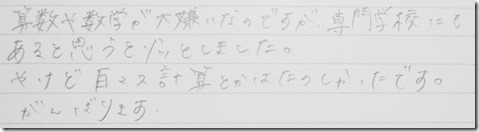 算数や数学が大嫌いなのですが、専門学校にも
あると思うとゾッとしました。
やけど百マス計算とかはたのしかったです。
がんばります.